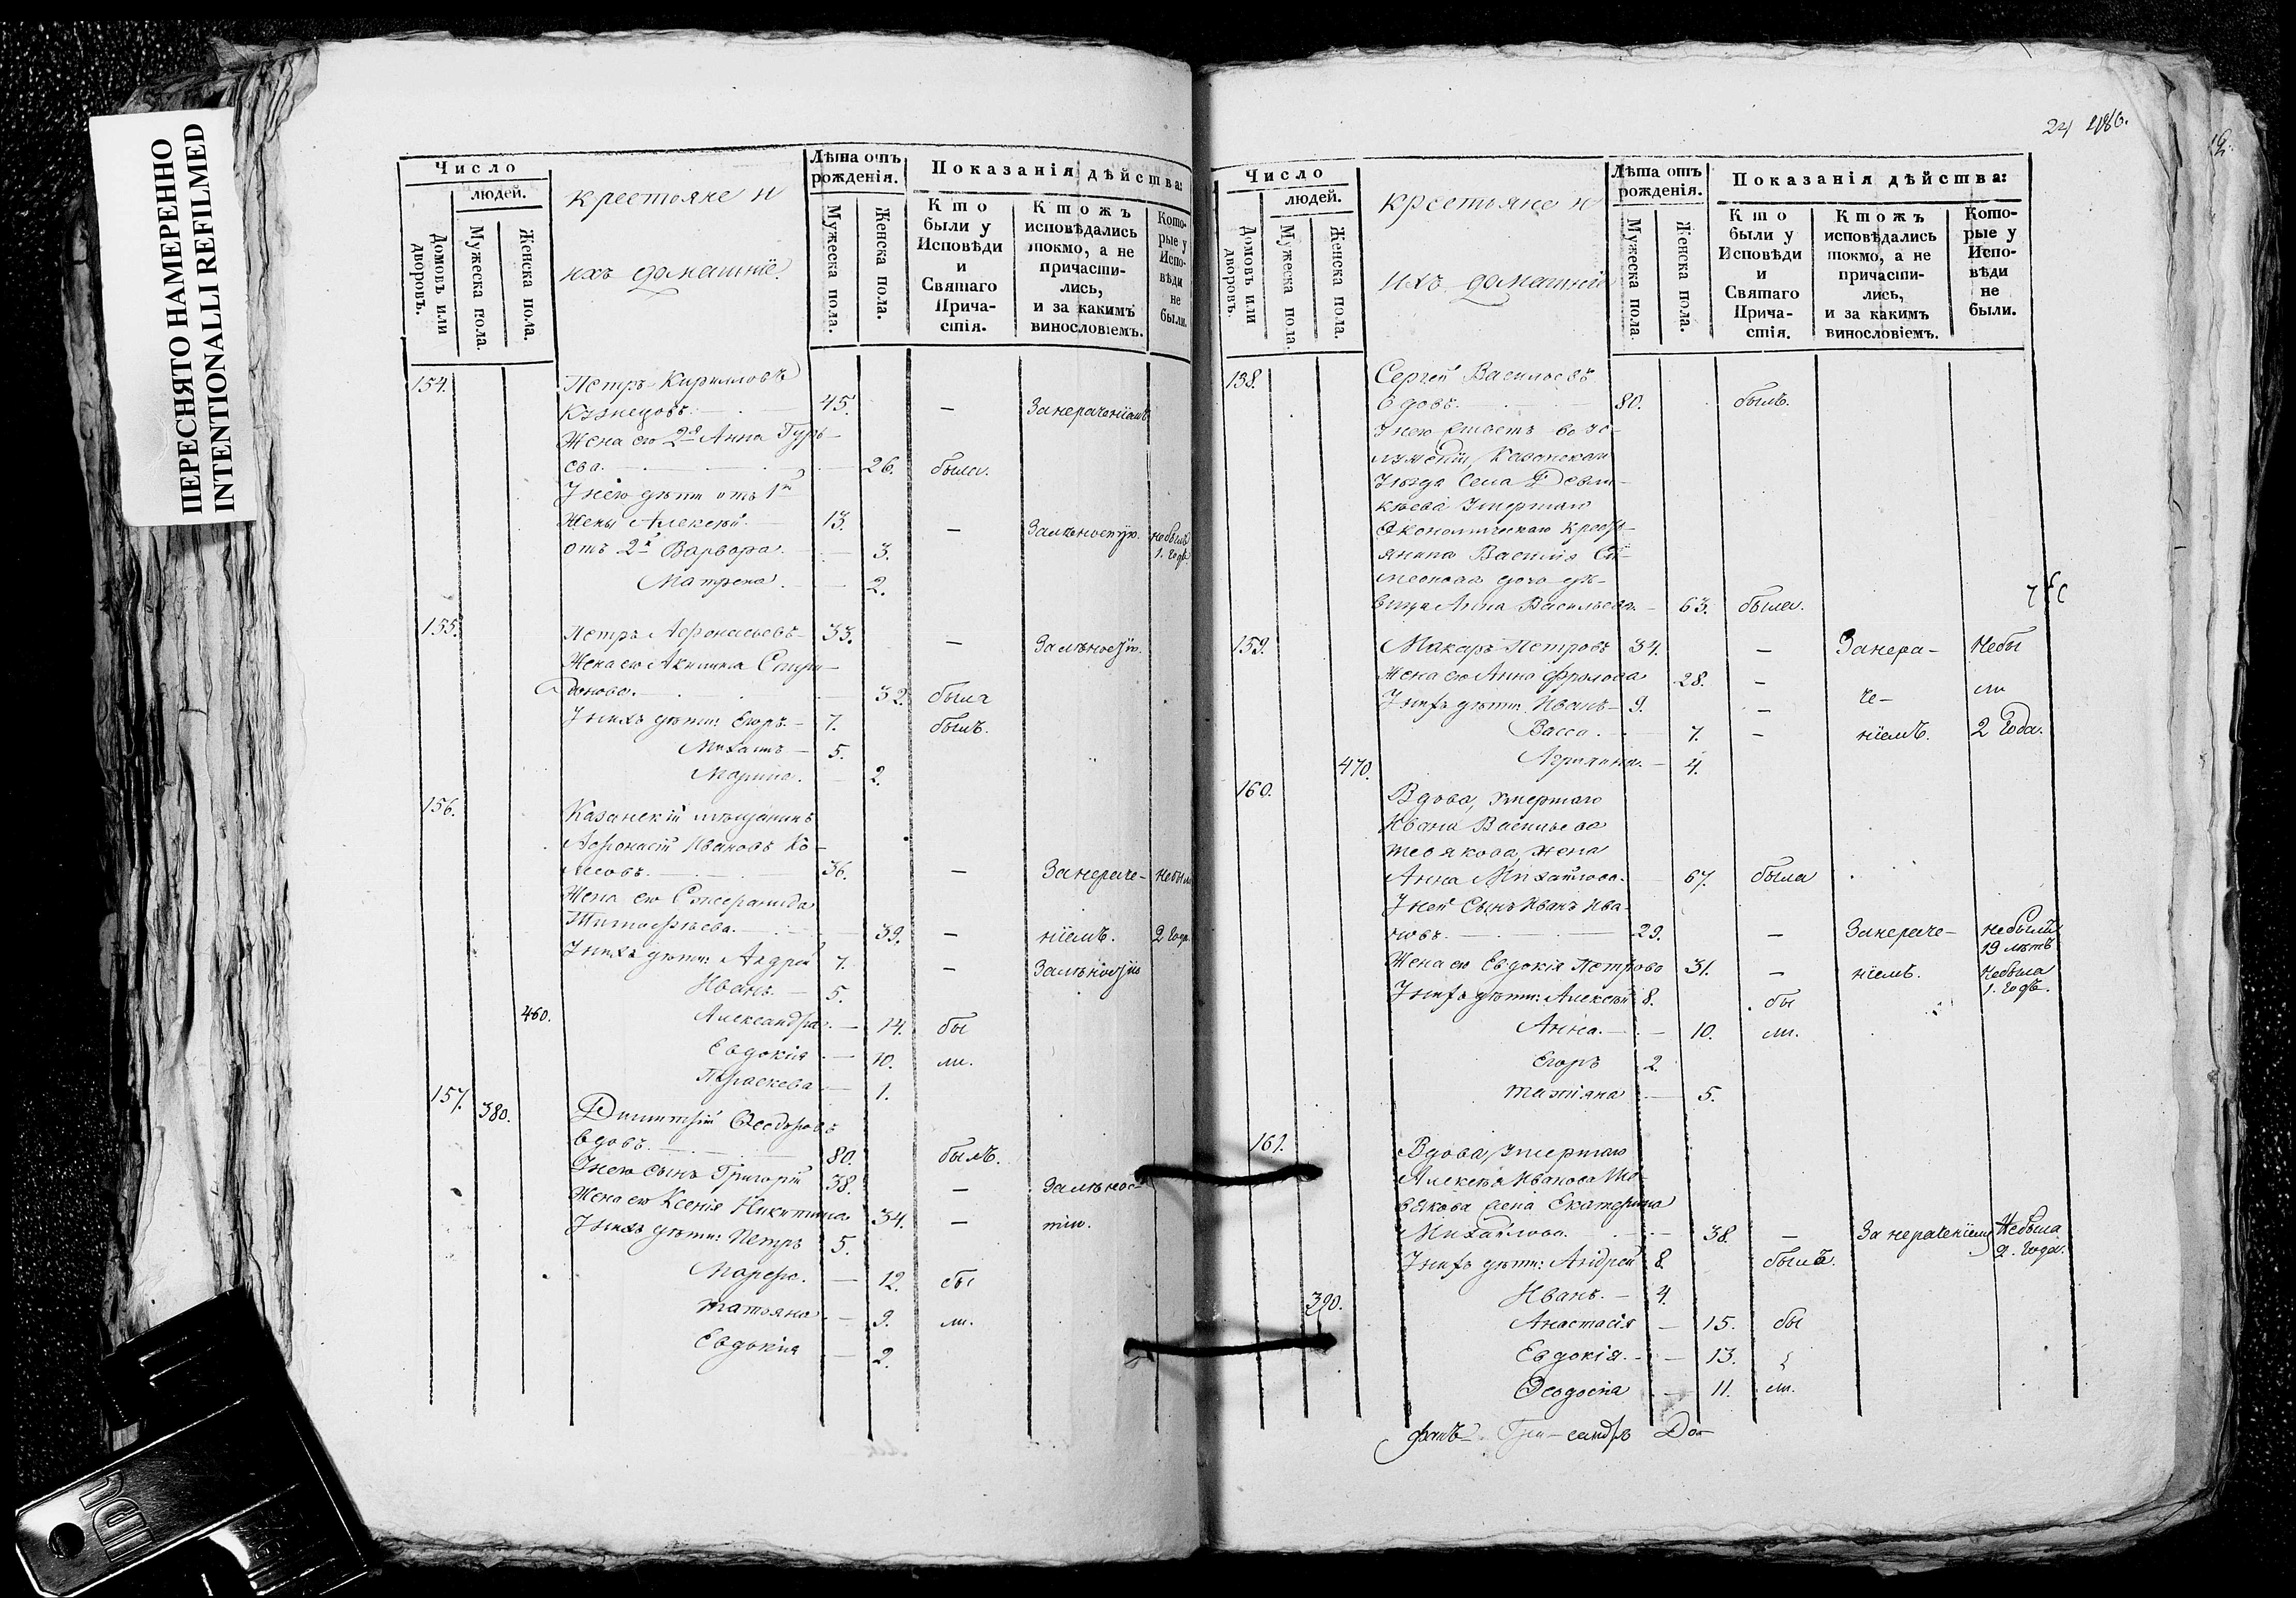 ПЕРЕСНЯТО НАМЕРЕННО
INTENTIONALLI REFILMED
Число
людей.
Домовъ или дворовъ.
Мужеска пола.
Женска пола.
крестьяне и
ихъ домашнїе.
Лѣта отъ рожденія.
Мужеска пола.
Женска пола.
Показанія дѣйства:
Кто были у Исповѣди и Святаго Причастія.
Ктожъ исповѣдались токмо, а не причастились, и за какимъ винословіемъ.
Которые у Исповѣди не были.
154. Петръ Кирилловъ
Кузнецовъ. 45. — Занераченїемъ
Жена его 2я Анна Гурь-
ева. 26. была.
У него дѣти отъ 1й
Жены Алексѣй. 13. — Залѣностїю. небылъ 1. годъ
отъ 2й Варвара. 3.
Матрена. 2.
155. Петръ Афонасьевъ 33. — Залѣностїю.
Жена его Акилина Спири-
донова. 32. была
У нихъ дѣти: Егоръ. 7. былъ.
Михаилъ 5.
Марина. 2.
156. Казанскїй мѣщанинъ
Афонасїй Ивановъ Ко-
лесовъ. 36. — Занераче- небыли
Жена его
Тимофѣева. 39. — нїемъ. 2 года
У нихъ дѣти: Андрей 7. — Залѣностїю
Иванъ. 5.
460. Александра. 14. бы
Евдокїя 10. ли.
Параскева 1.
157. 380. Димитрїй Ѳеодоровъ
вдовъ. 80. былъ.
У него сынъ Григорїй 38. — Залѣнос-
Жена его Ксенїя Никитина 34. — тїю.
У нихъ дѣти: Петръ 5.
Марфа. 12. бы
Татьяна 9. ли.
Евдокїя 2.
24 486.
Число
людей.
Домовъ или дворовъ.
Мужеска пола.
Женска пола.
крестьяне и
ихъ домашнїе
Лѣта отъ рожденія.
Мужеска пола
Женска пола.
Показанія дѣйства:
Кто были у Исповѣди и Святаго Причастія.
Ктожъ исповѣдались токмо, а не причастились, и за какимъ винословіемъ.
Которые у Исповѣди не были.
138. Сергѣй Васильевъ
вдовъ. 80. былъ.
У него
Казанскаго
Уѣзда Села
умершаго
Экономическаго кресть-
янина Василїя Си-
меонова дочь дѣ-
вица Анна Васильева. 63. была.
159. Макаръ Петровъ 34. — Занера- Небы
Жена его Анна Фролова 28. — че- ли
У нихъ дѣти: Иванъ 9. —
Васса. 7. — нїемъ. 2 года.
470. 4.
160. Вдова, умершаго
Ивана Васильева
Шевякова, жена
Анна Михайлова. 67. была
У ней сынъ Иванъ Ива-
новъ. 29. — Занераче- небылъ 19 лѣтъ
Жена его Евдокїя Петрова 31. — нїемъ. Небыла 1. годъ.
У нихъ дѣти: Алексѣй 8. бы
Анна. 10. ли.
Егоръ 2.
Татїяна 5.
161. Вдова, умершаго
Алексѣя Иванова Ше-
вякова жена Екатерина
Михайлова. 38. — За нераченїемъ Небыла 2. года.
У нихъ дѣти: Андрей 8. былъ.
390. Иванъ. 4.
Анастасїя 15. бы
Евдокїя. 13.
Ѳеодосїа 11. ли.